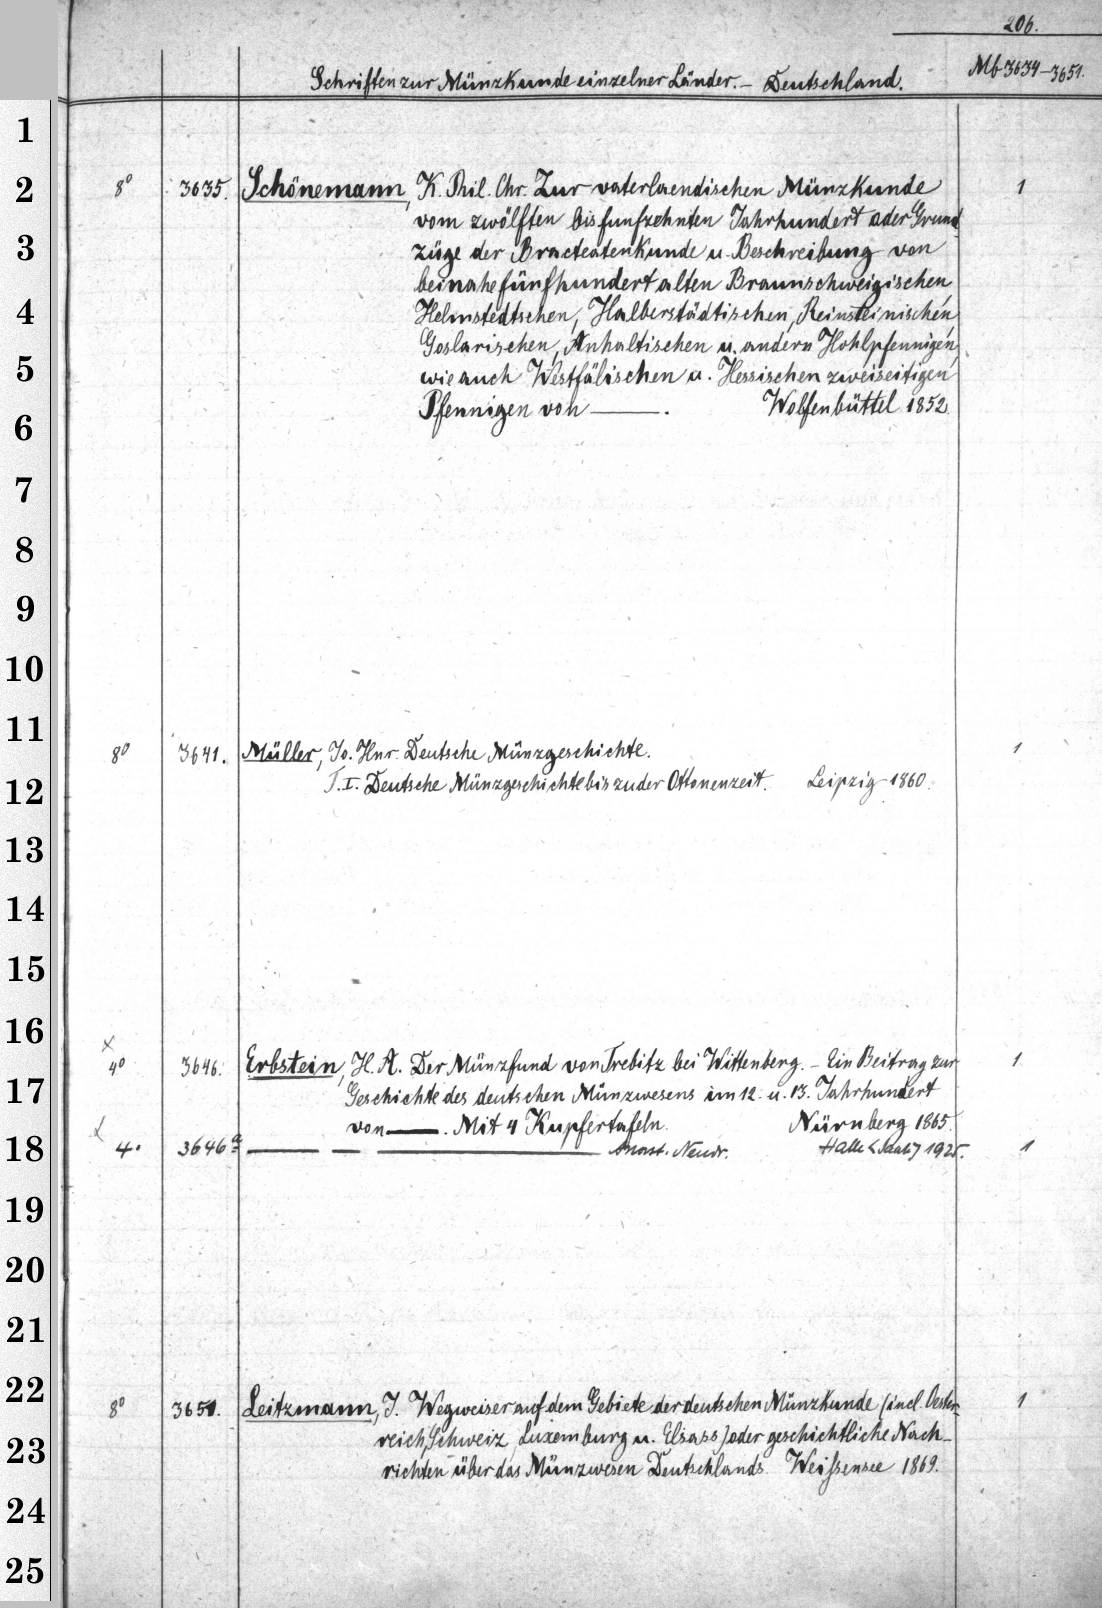 206.
Schriften zur Münzkunde einzelner Länder. – Deutschland. Mb 3634–3651.
1
2 8° 3635. Schönemann, K. Phil. Chr. Zur vaterlaendischen Münzkunde 1
vom zwölften bis funfzehnten Jahrhundert oder Grund-
3 züge der Bracteatenkunde u. Beschreibung von
beinahe fünfhundert alten Braunschweigischen
4 Helmstedtschen, Halberstädtischen, Reinsteinischen
Goslarischen, Anhaltischen u. andern Hohlpfennigen,
5 wie auch Westfälischen u. Hessischen zweiseitigen
Pfennigen von ——. Wolfenbüttel 1852
6
7
8
9
10
11
8° 3641. Müller, Jo. Hnr. Deutsche Münzgeschichte. 1
12 T. I. Deutsche Münzgeschichte bis zu der Ottonenzeit. Leipzig 1860.
13
14
15
16
x
4° 3646. Erbstein, H. A. Der Münzfund von Trebitz bei Wittenberg. – Ein Beitrag zur 1
17 Geschichte des deutschen Münzwesens im 12. u. 13. Jahrhundert
von ——. Mit 4 Kupfertafeln. Nürnberg 1865.
x
18 4° 3646a —— — —————— Anast. Neudr. Halle <Saale> 1925. 1
19
20
21
22 8° 3651. Leitzmann, J. Wegweiser auf dem Gebiete der deutschen Münzkunde (incl. Oester- 1
23 reich, Schweiz, Luxemburg u. Elsass) oder geschichtliche Nach-
richten über das Münzwesen Deutschlands. Weißensee 1869.
24
25